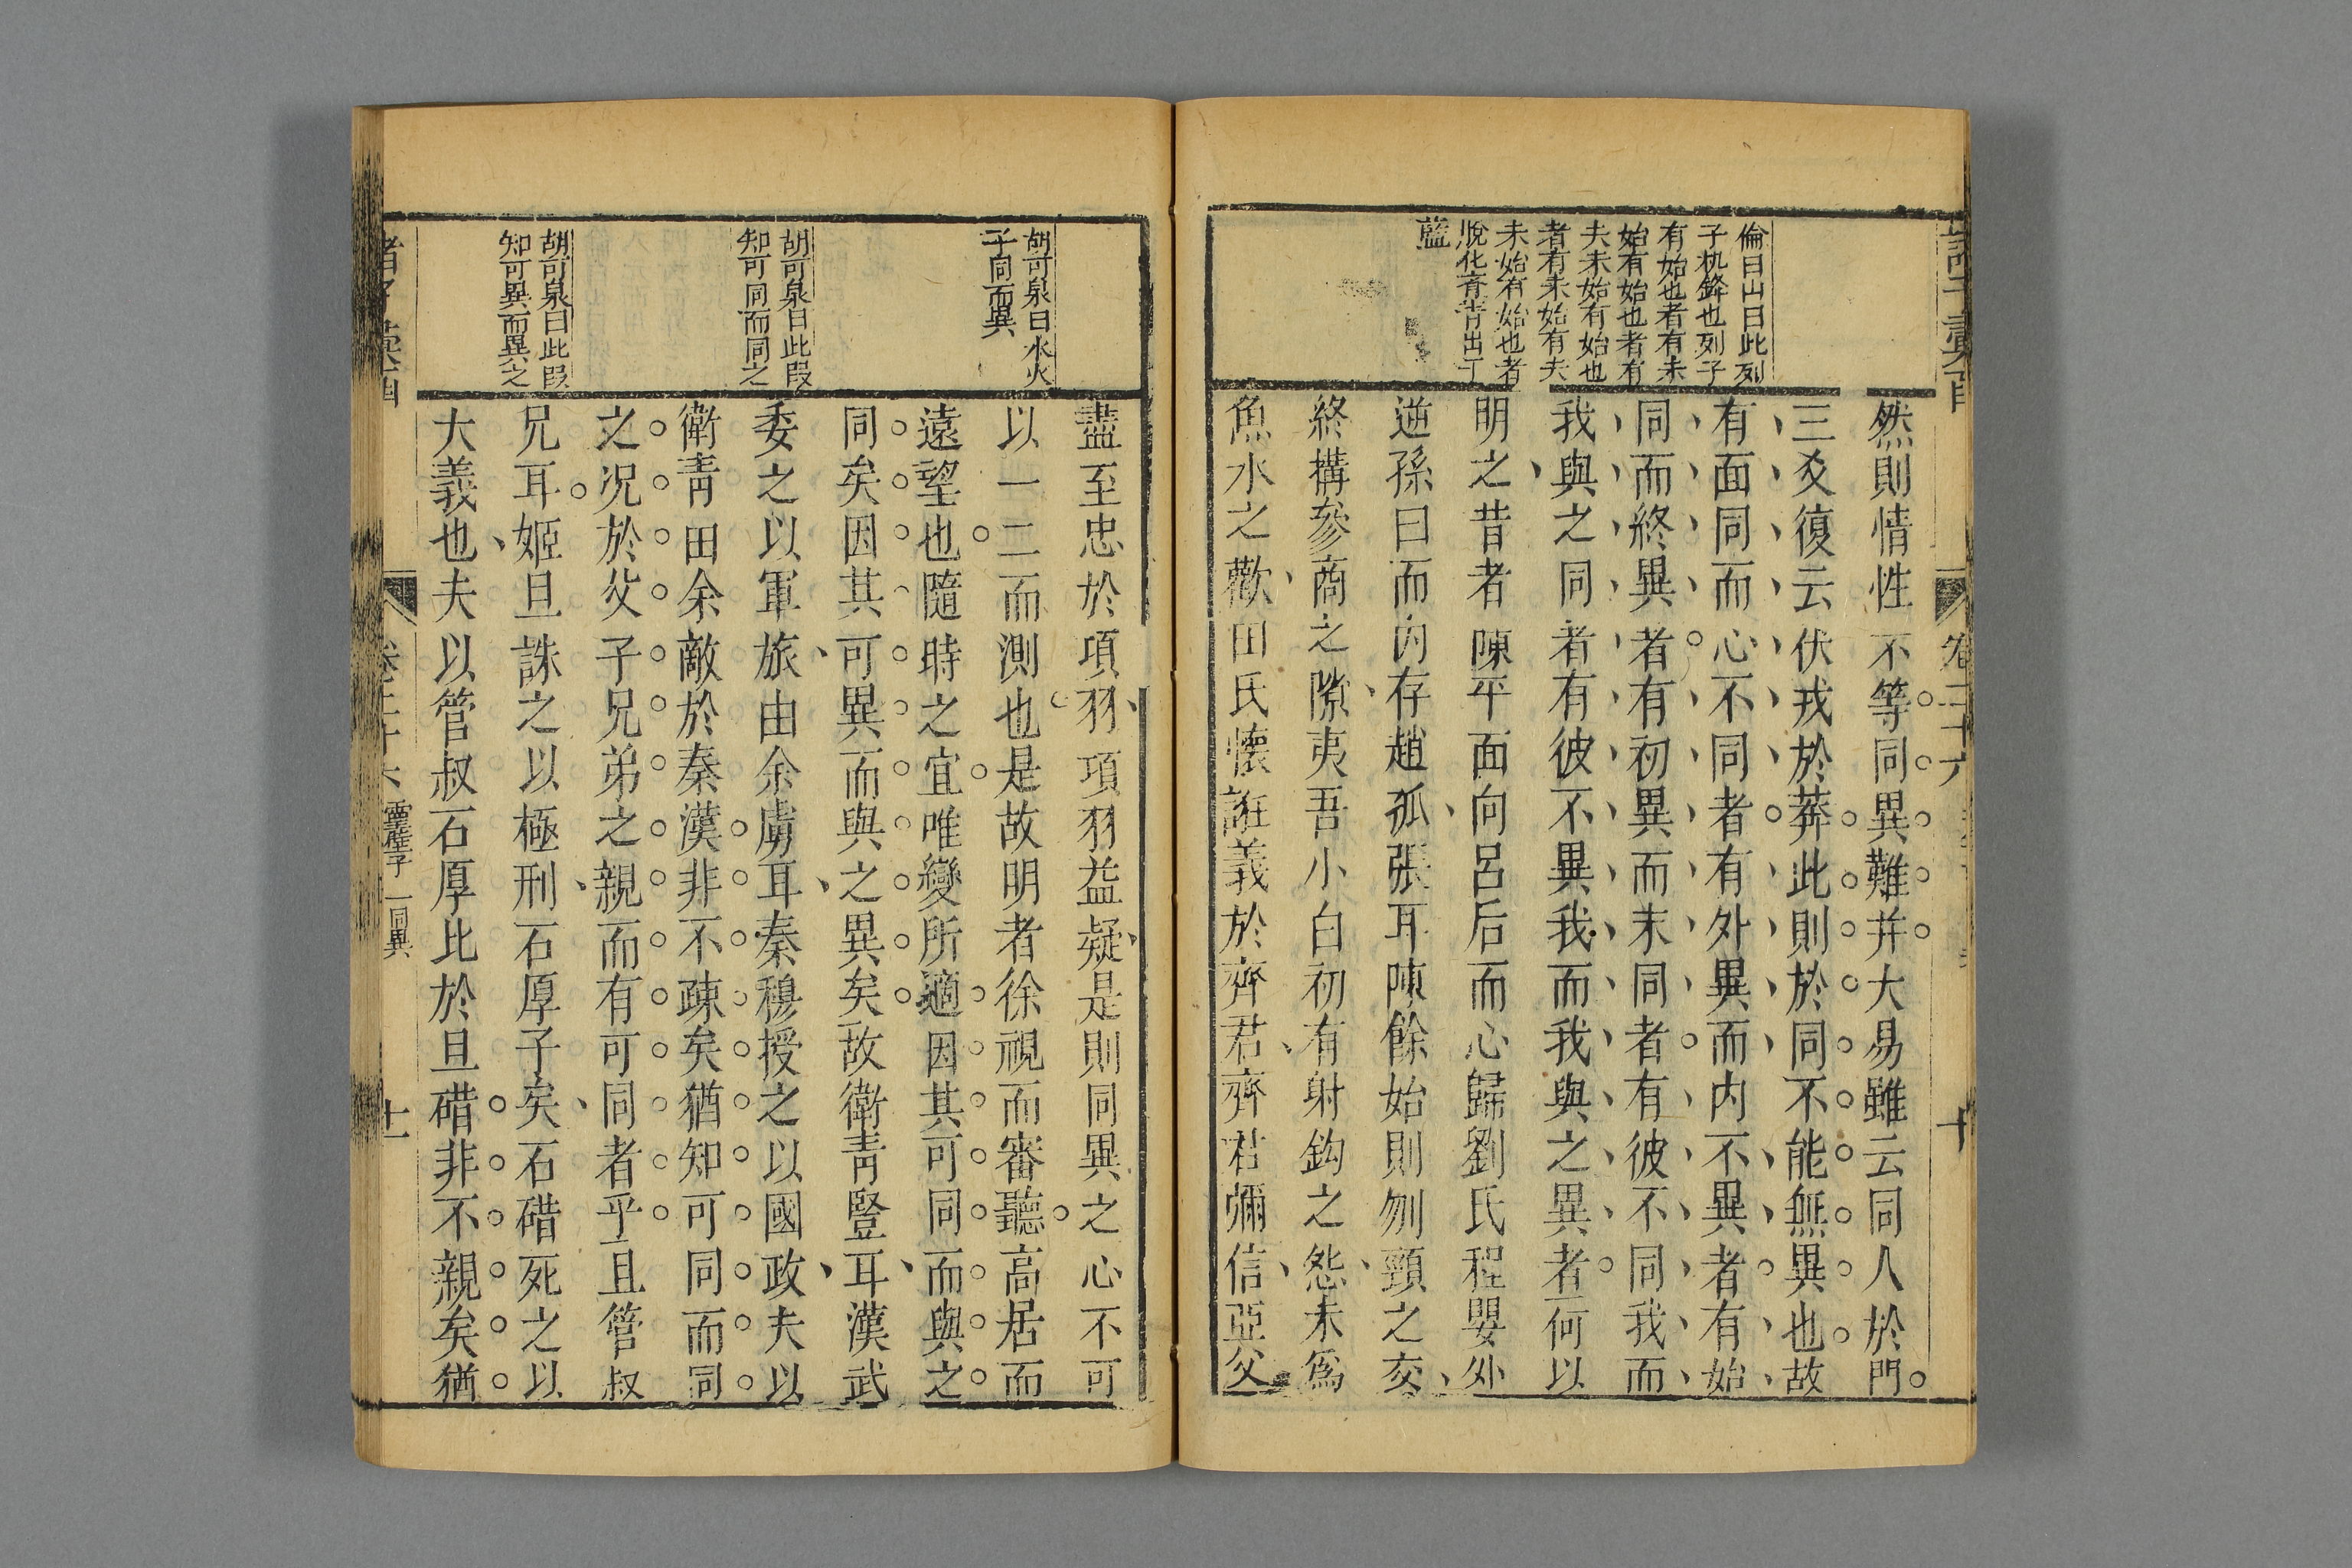 倫曰山曰此列
子杌鋒也列子
有始也者有未
始有始也者有
夫未始有始也
者有未始有夫
未始有始也者
脫化青出于
藍
然則情性不等同異難并大易雖云同人於門
三爻復云伏戎於莽此則於同不能無異也故
有面同而心不同者有外異而内不異者有始
同而終異者有初異而末同者有彼不同我而
我與之同者有彼不異我而我與之異者何以
明之昔者陳平面向呂后而心歸劉氏程嬰外
逆孫曰而内存趙孤張耳陳餘始則刎頸之交
終搆參商之隙夷吾小白初有射鈎之怨未爲
魚水之歡田氏懷誑義於齊君齊君彌信亞父
卷二十六
十
胡可泉曰水火
子同而異
胡可泉曰此叚
知可同而同之
胡可泉曰此叚
知可異而異之
盡至忠於項羽項羽益疑是則同異之心不可
以一二而測也是故明者徐視而審聽高居而
遠望也隨時之宜唯變所適因其可同而與之
同矣因其可異而與之異矣故衛靑豎耳漢武
委之以軍旅由余虜耳秦穆授之以國政夫以
衛靑由余敵於秦漢非不疎矣猶知可同而同
之况於父子兄弟之親而有可同者乎且管叔
兄耳姬旦誅之以極刑石厚子矣石碏死之以
大義也夫以管叔石厚比於旦碏非不親矣猶
靈璧子 同異
十一